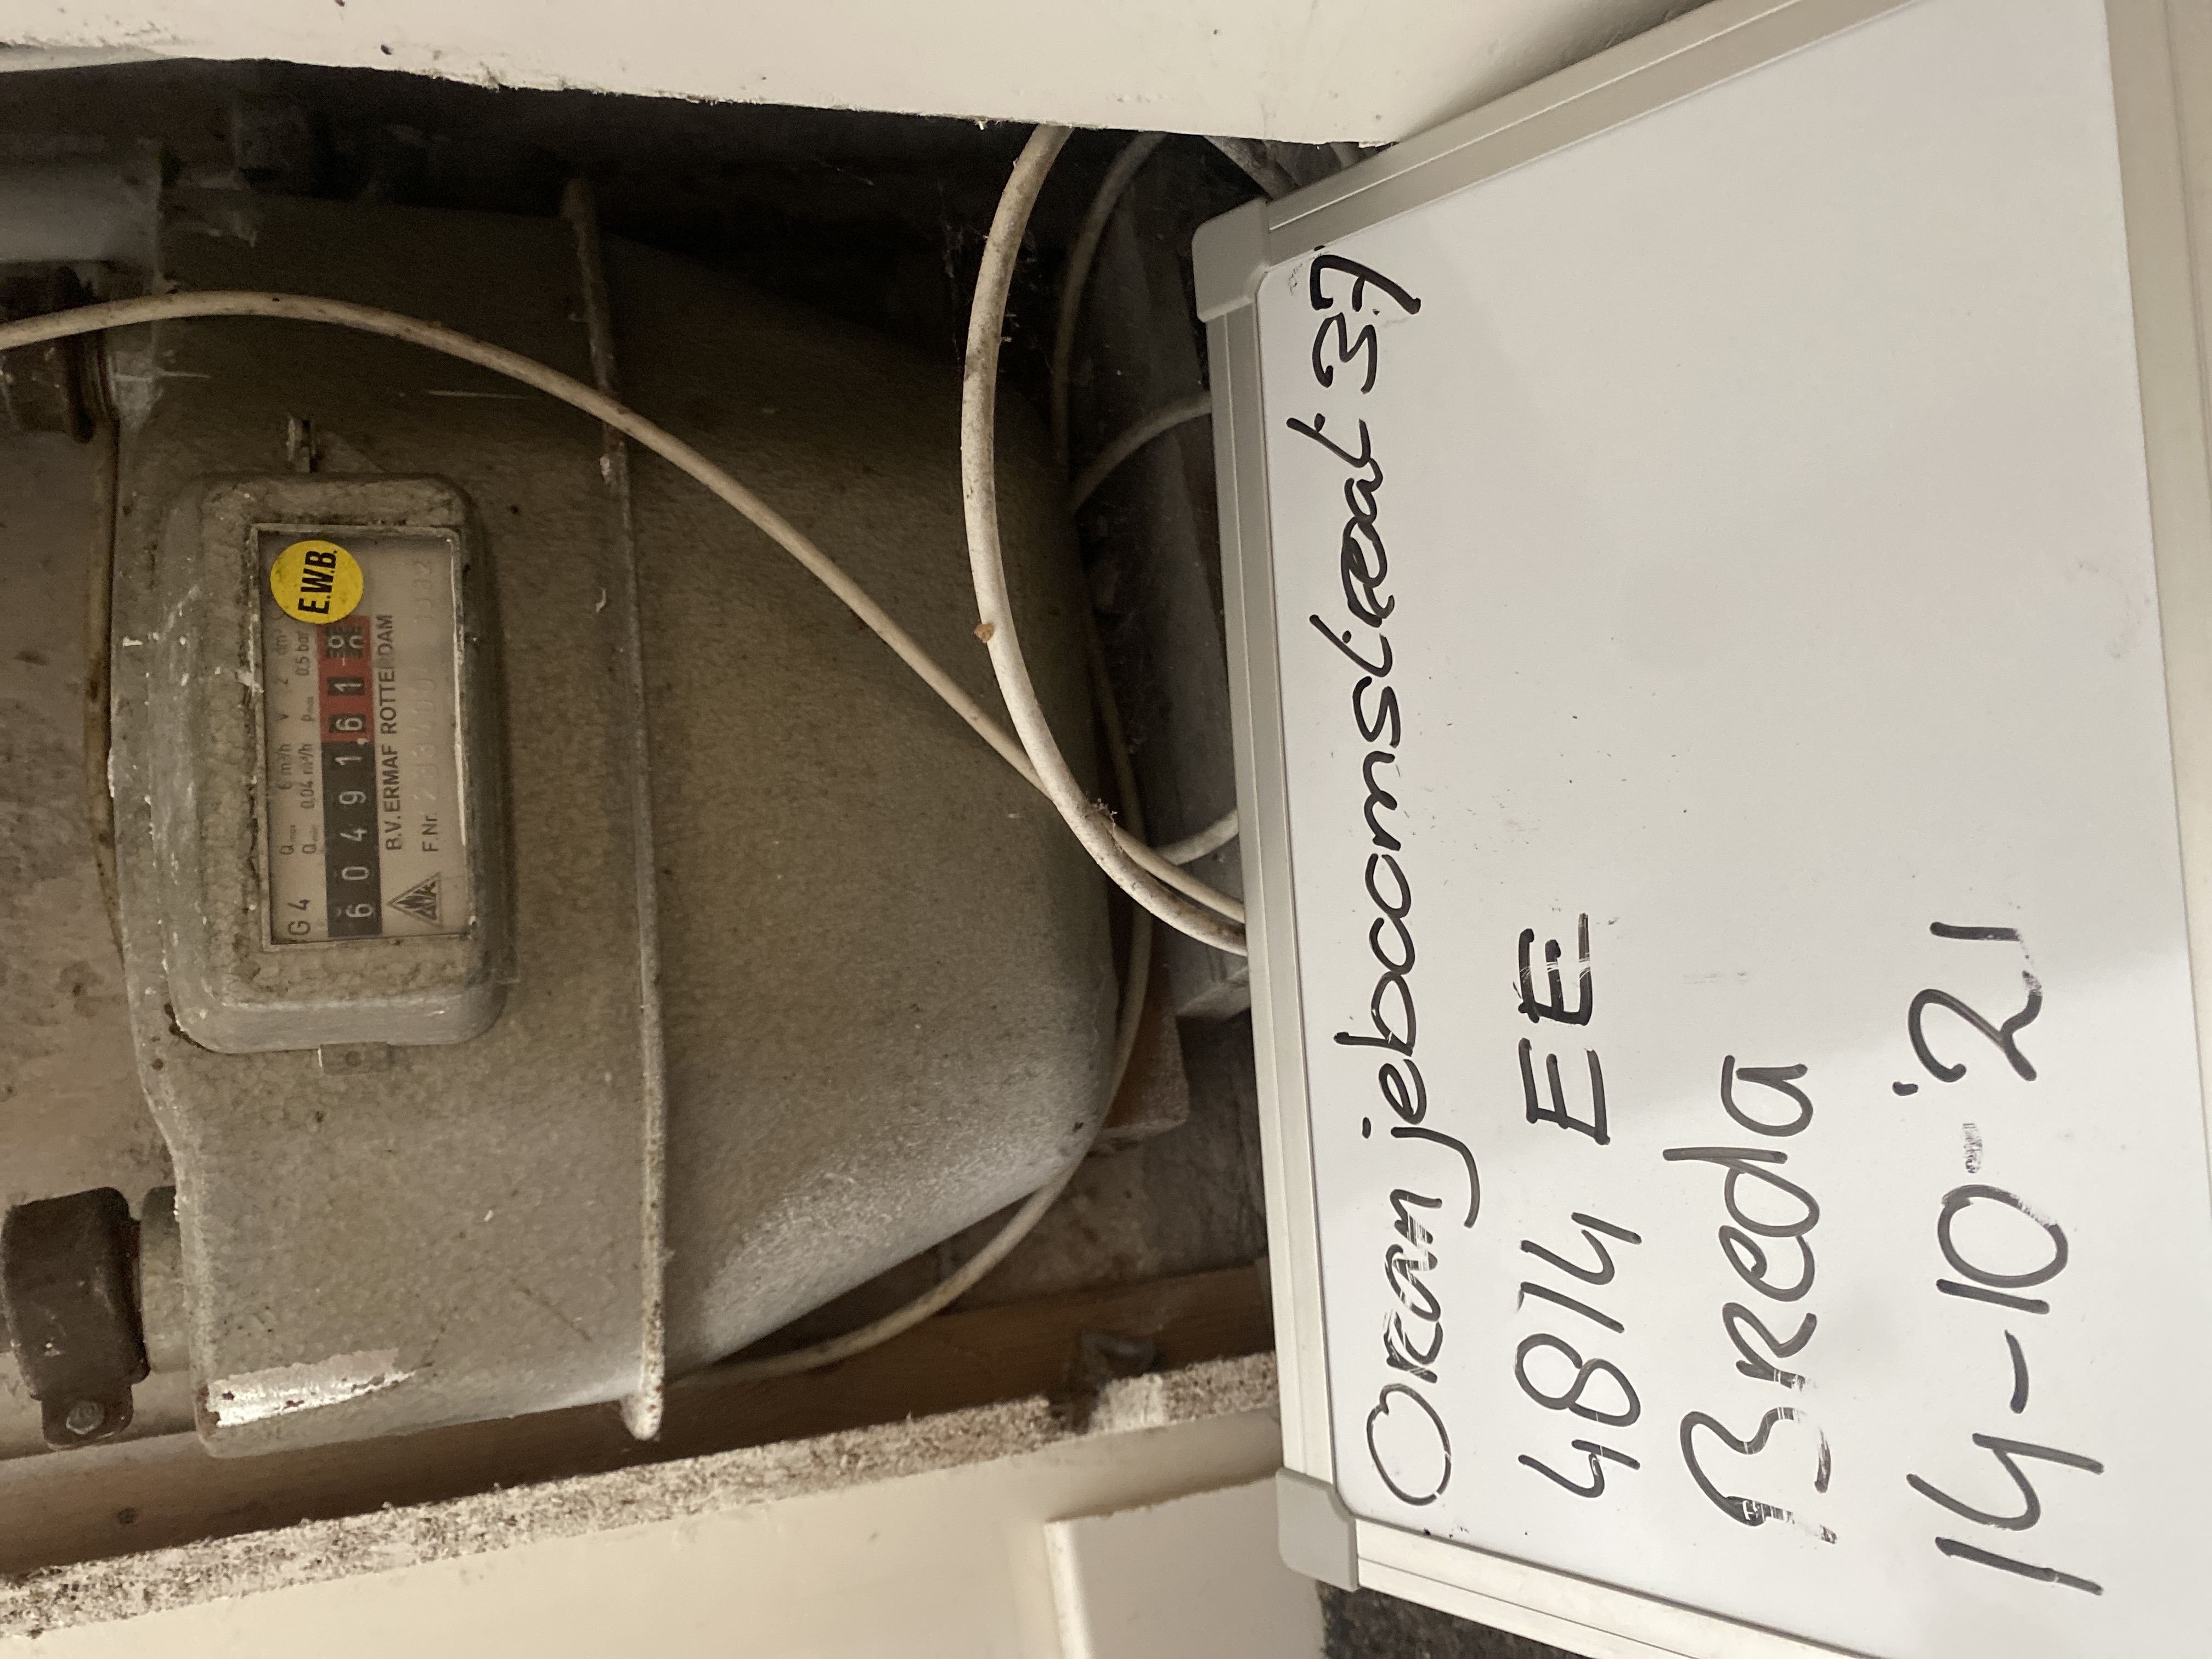 G 4 Qmax 6 m³/h V 2 dm³
Qmin 0,04 m³/h pmax 0.5 bar
E.W.B.
60491,61
B.V. ERMAF ROTTERDAM
F.Nr.
Oranjeboomstraat 37
4814 EE
Breda
14-10-'21